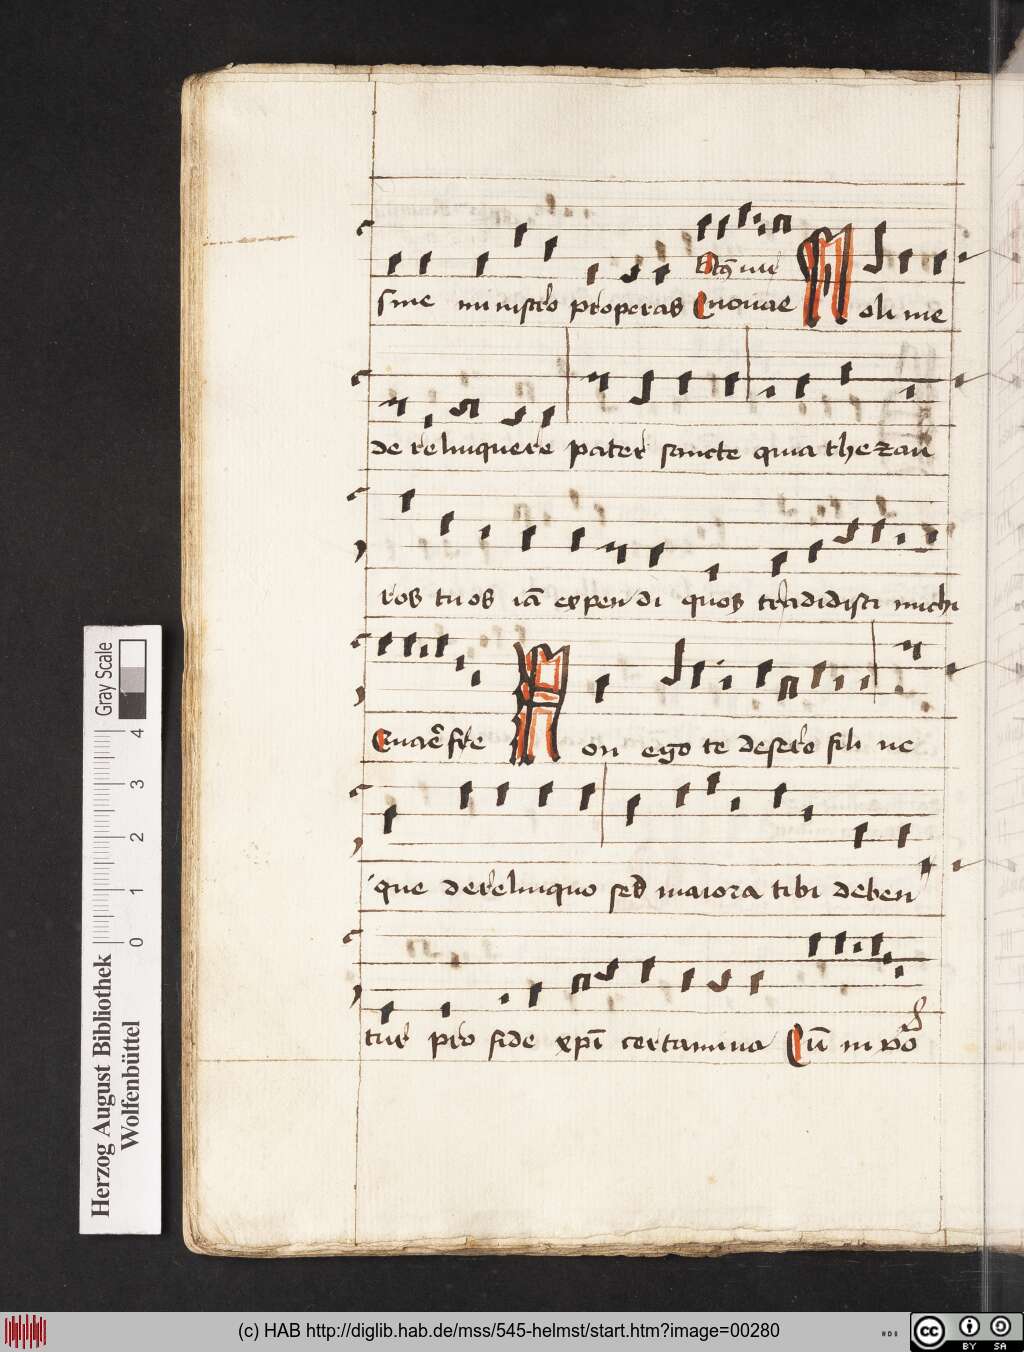 sine ministro properas Euouae Noli me
de relinquere pater sancte quia thezau
ros tuos iā expendi quos tradidisti michi
Euae N on ego te desero fili ne
que derelinquo sed maiora tibi deben
tur pro fide xp̄i certamina
Gray Scale
4
3
2
1
0
Herzog August Bibliothek
Wolfenbüttel
(c) HAB http://diglib.hab.de/mss/545-helmst/start.htm?image=00280
cc BY SA